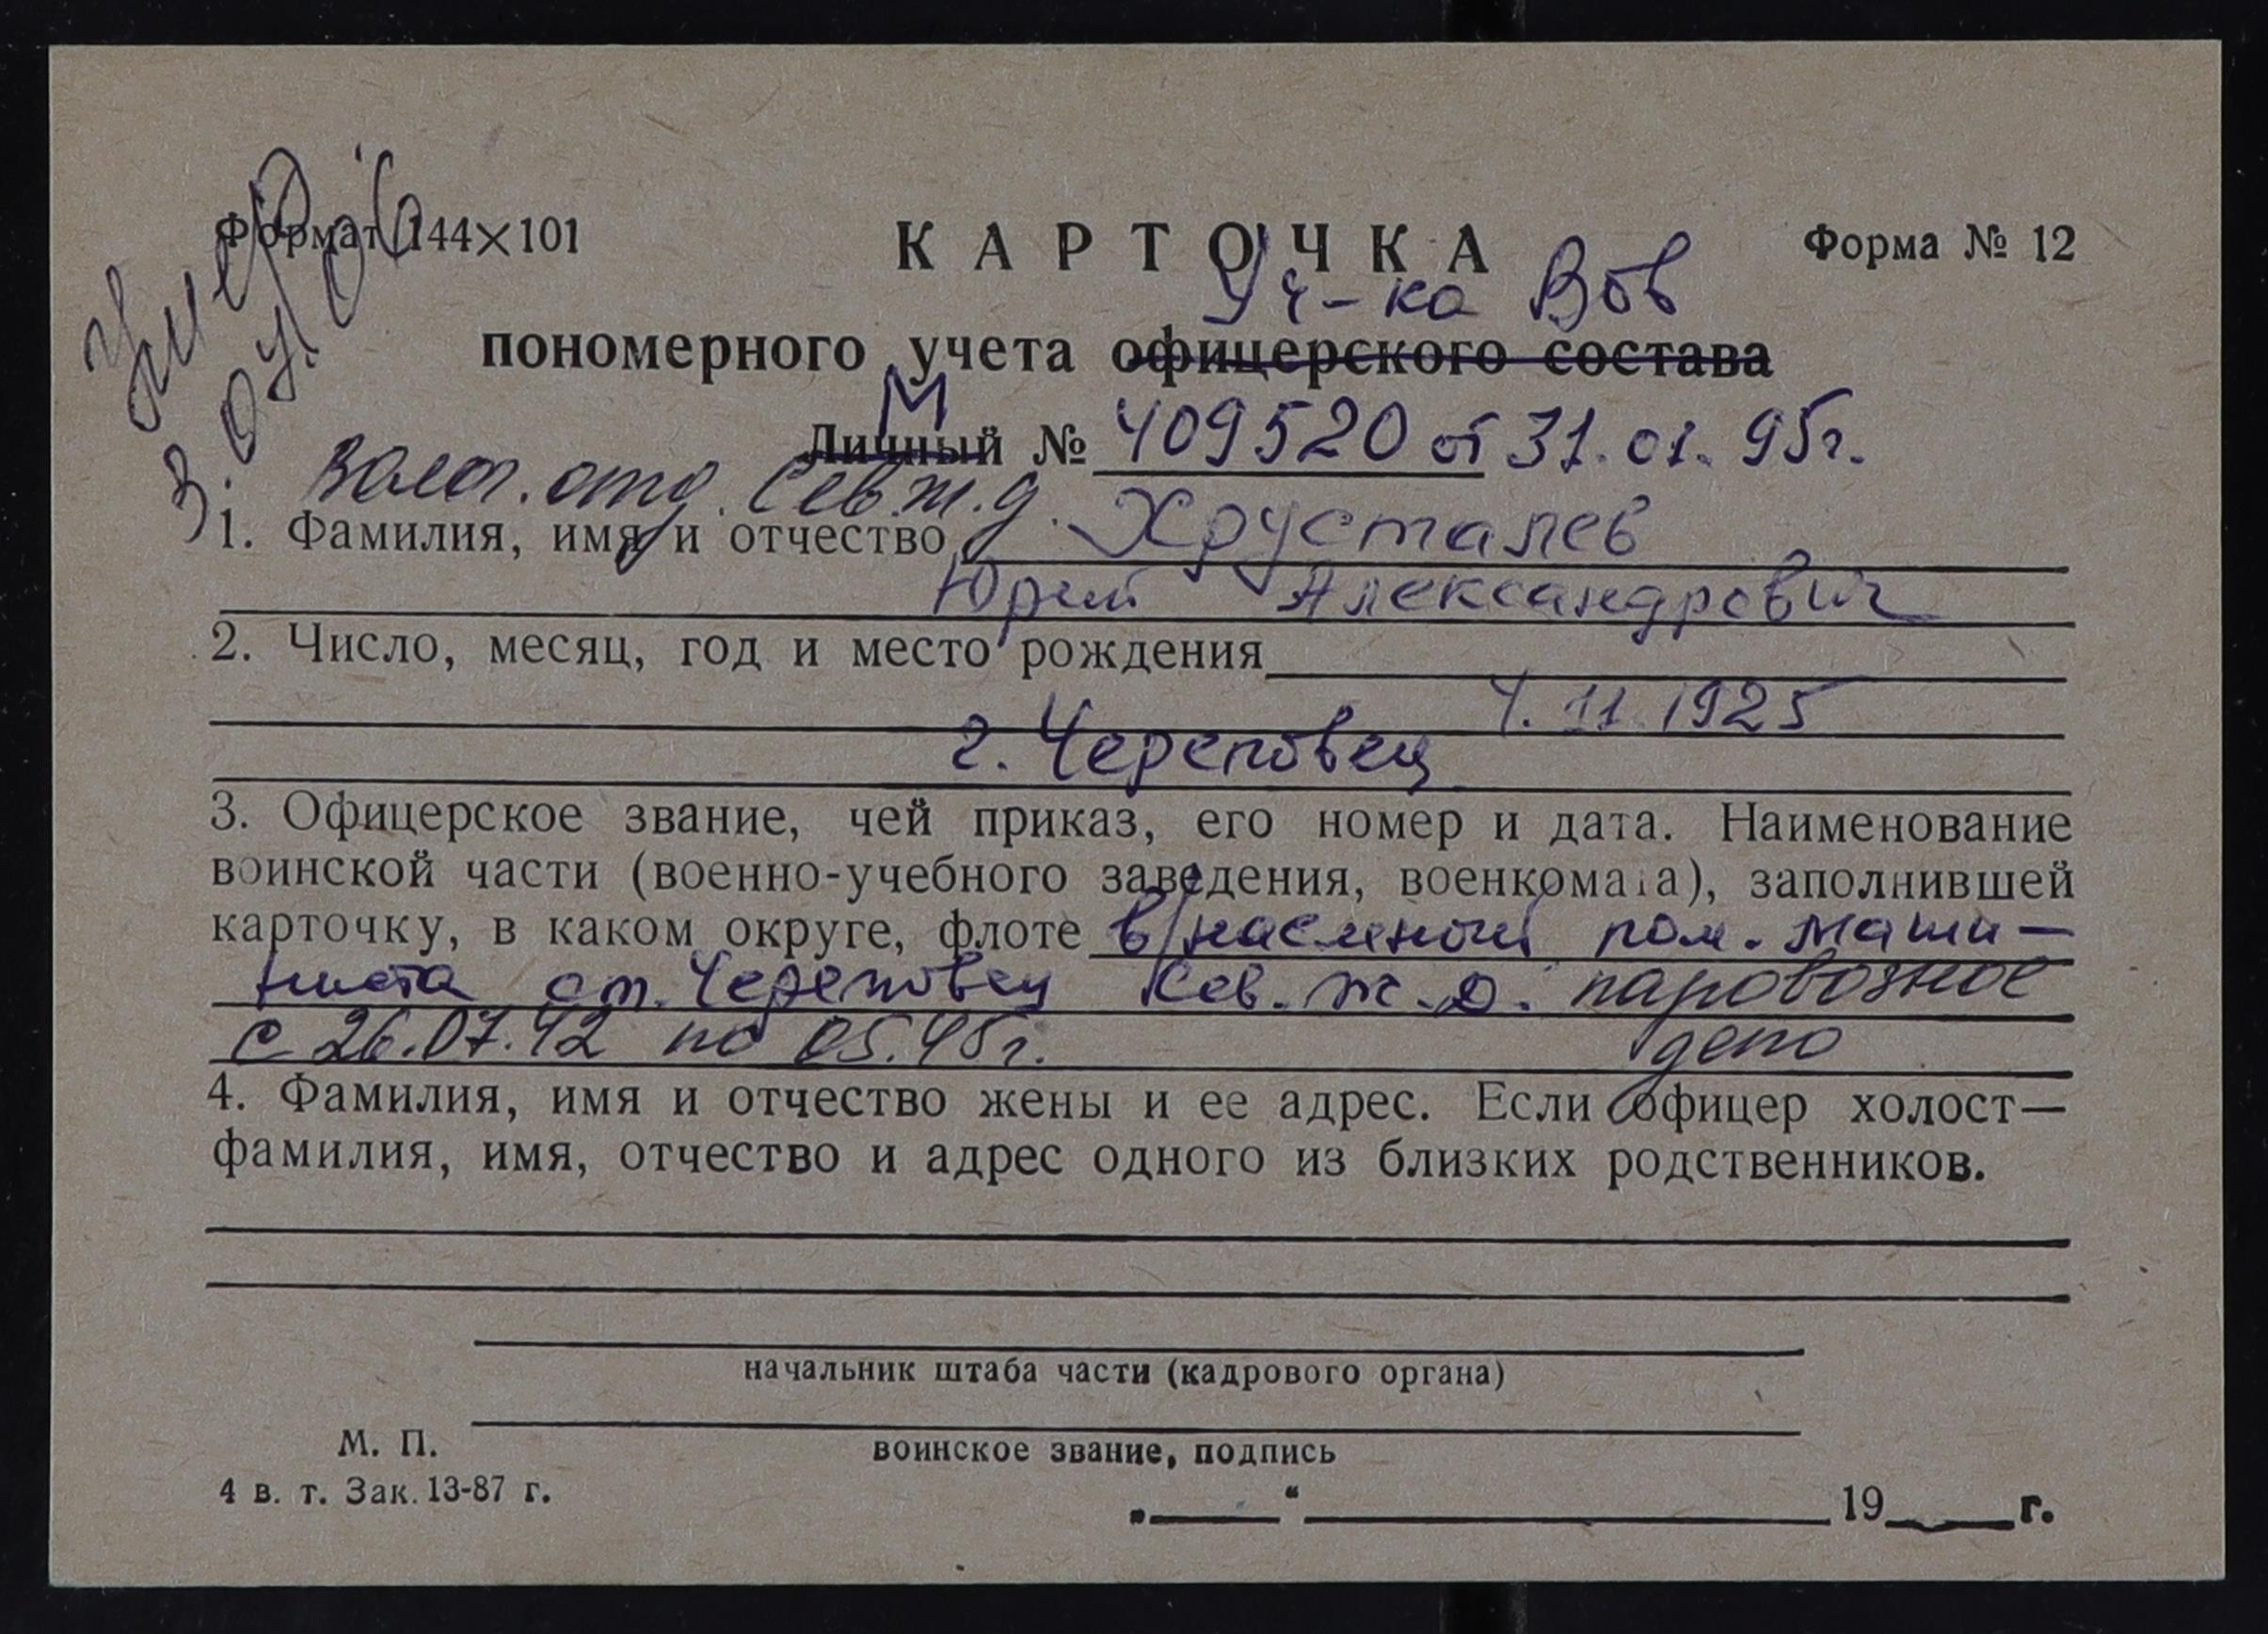 Формат 144×101
КАРТОЧКА
Форма № 12
Уч-ка ВОВ
пономерного учета офицерского состава
М
Личный № 409520 от 31.01.95г.
умер
3.04.06
Волог. отд. Сев. ж. д.
1. Фамилия, имя и отчество Хрусталев
Юрий Александрович
2. Число, месяц, год и место рождения
4.11.1925
г. Череповец
3. Офицерское звание, чей приказ, его номер и дата. Наименование
воинской части (военно-учебного заведения, военкомата), заполнившей
карточку, в каком округе, флоте в/наемный пом. маши-
ниста ст. Череповец Сев. ж. д. паровозное
с 26.07.42 по 05.45г. депо
4. Фамилия, имя и отчество жены и ее адрес. Если офицер холост—
фамилия, имя, отчество и адрес одного из близких родственников.
начальник штаба части (кадрового органа)
М. П.
воинское звание, подпись
4 в. т. Зак. 13-87 г.
„ “ 19 г.